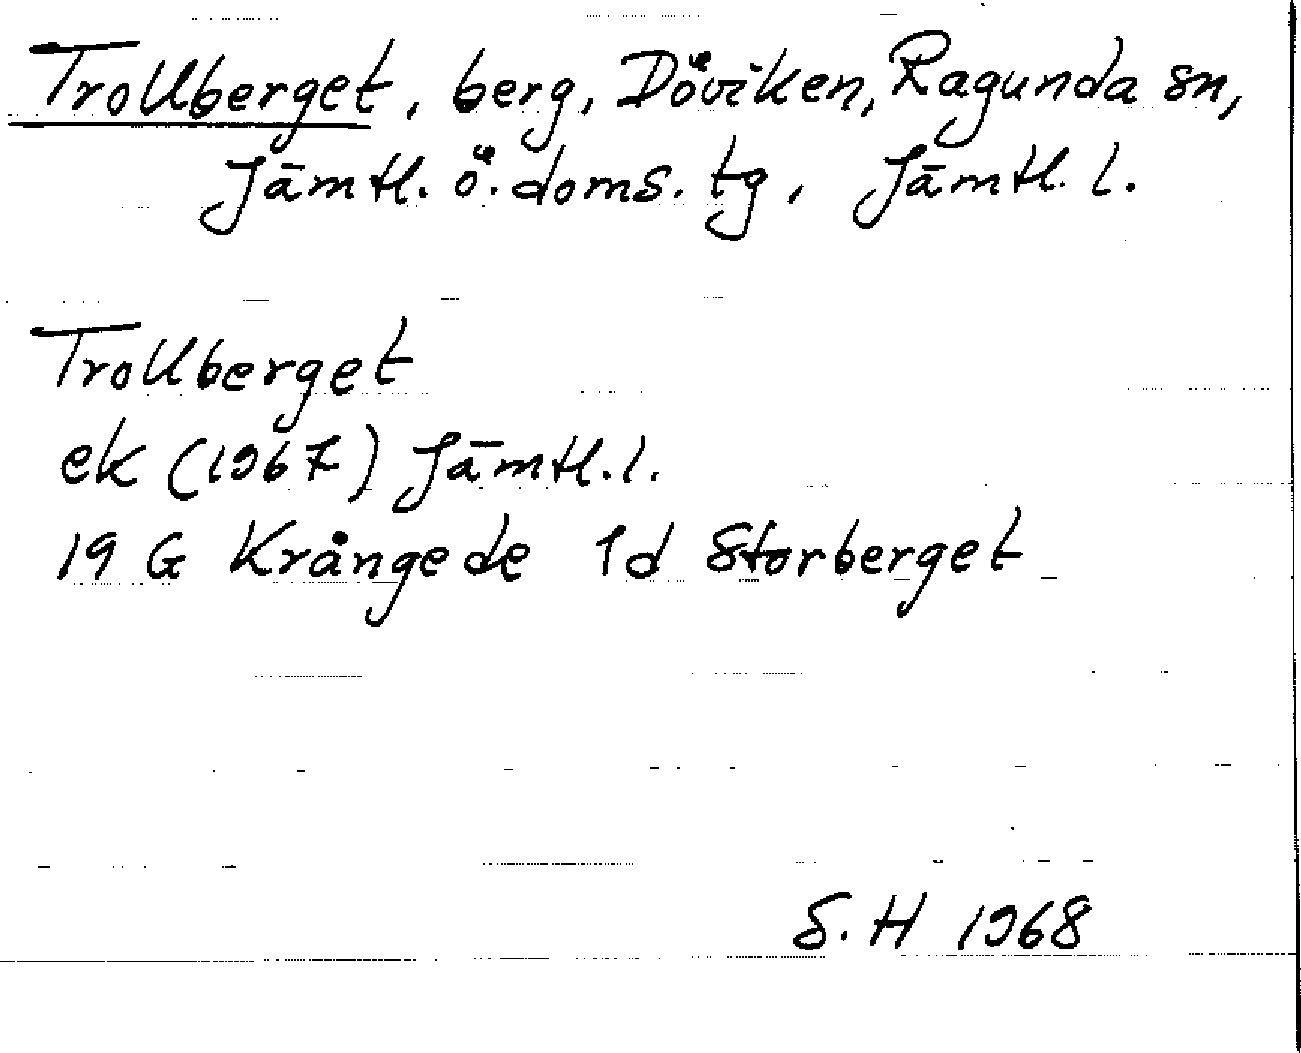 Trollberget, berg, Döviken, Ragunda sn,
Jämtl. ö. doms. tg, Jämtl. l.
Trollberget
ek (1967) Jämtl. l.
19 G Krångede 1d Storberget
S. H 1968